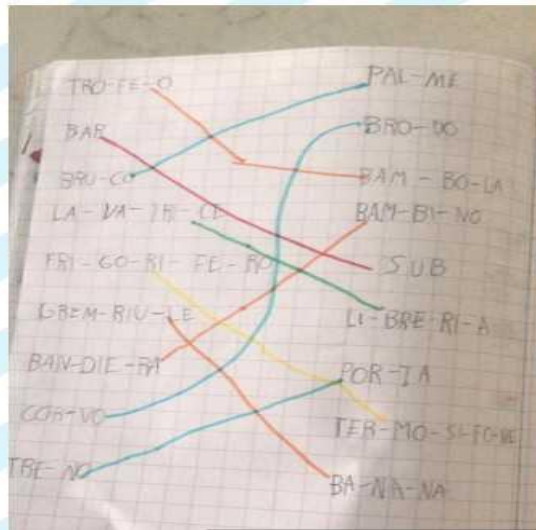 TRO-FE-O
BAR
BRU-CO
LA-VA-TRI-CE
FRI-GO-RI-FE-RO
GREM-BIU-LE
BAN-DIE-RA
COR-VO
TRE-NO
PAL-ME
BRO-DO
BAM-BO-LA
BAM-BI-NO
SUB
LI-BRE-RI-A
POR-TA
TER-MO-SI-FO-NE
BA-NA-NA